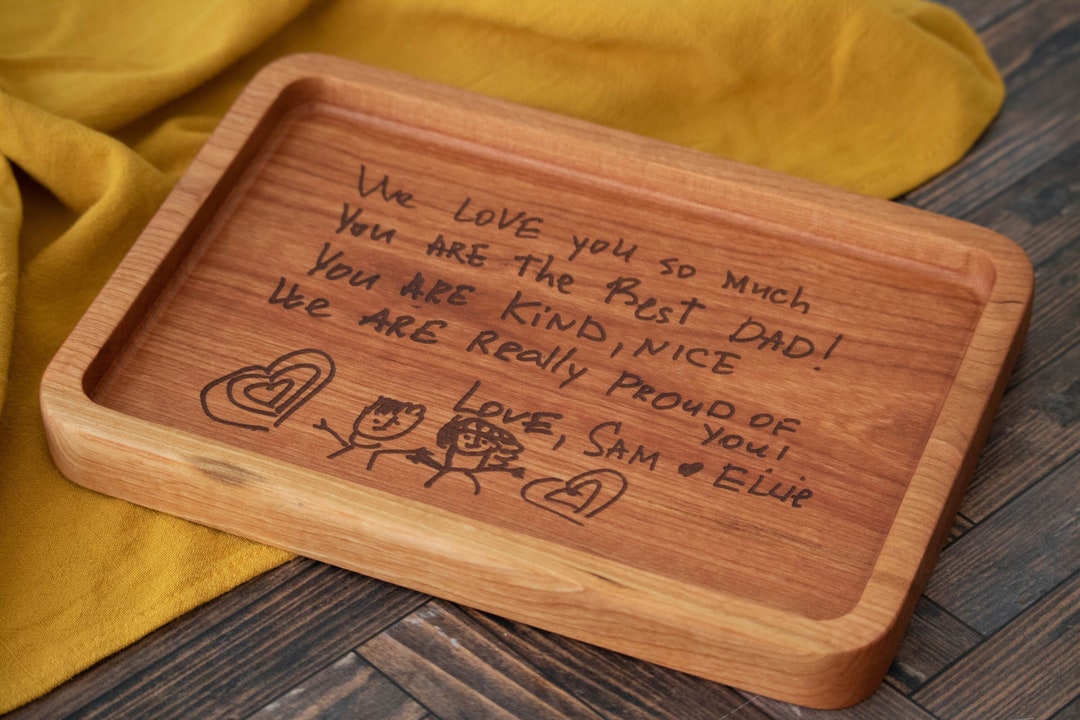 We LOVE you so Much
You ARE the Best DAD!
You ARE KiND, NICE
We ARE Really PROUD OF
you!
LOVE, SAM ♥ Ellie